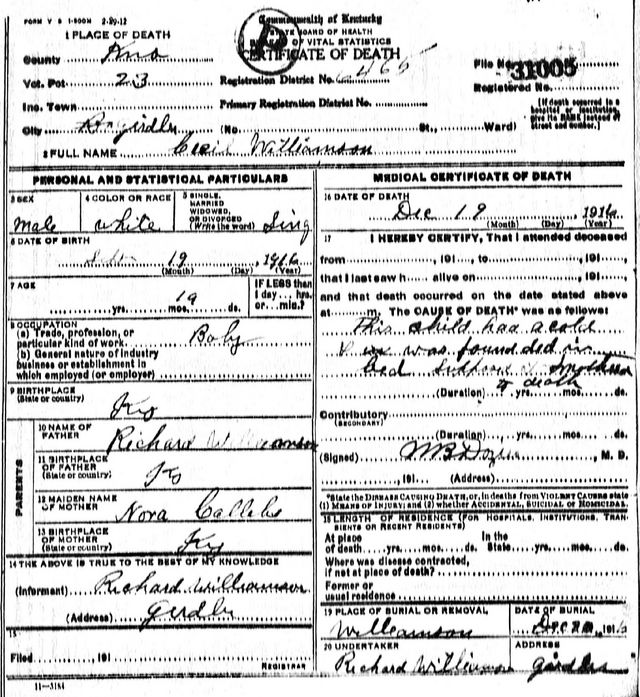 FORM V S 1-500M 2-29-12
Commonwealth of Kentucky
STATE BOARD OF HEALTH
BUREAU OF VITAL STATISTICS
CERTIFICATE OF DEATH
1 PLACE OF DEATH
County Knox
Vot. Pct 23
Inc. Town
City
Registration District No. 6465
Primary Registration District No.
(No. St., Ward)
File No. 31005
Registered No.
[If death occurred in a hospital or institution, give its NAME instead of street and number.]
2 FULL NAME Cecil Williamson
PERSONAL AND STATISTICAL PARTICULARS
3 SEX
Male
4 COLOR OR RACE
White
5 SINGLE, MARRIED WIDOWED, OR DIVORCED (Write the word) Sing
6 DATE OF BIRTH
19 1916
(Month) (Day) (Year)
7 AGE
yrs. mos. ds.
IF LESS than 1 day... hrs. or... min.?
8 OCCUPATION
(a) Trade, profession, or particular kind of work. Baby
(b) General nature of industry business or establishment in which employed (or employer)
9 BIRTHPLACE
(State or country) Ky
PARENTS
10 NAME OF FATHER Richard Williamson
11 BIRTHPLACE OF FATHER (State or country) Ky
12 MAIDEN NAME OF MOTHER Nora
13 BIRTHPLACE OF MOTHER (State or country) Ky
14 THE ABOVE IS TRUE TO THE BEST OF MY KNOWLEDGE
(Informant) Richard Williamson
(Address) Girdler
15
Filed 191
REGISTRAR
11-3184
MEDICAL CERTIFICATE OF DEATH
16 DATE OF DEATH
Dec 19 1916
(Month) (Day) (Year)
17 I HEREBY CERTIFY, That I attended deceased
from , 191 , to , 191 ,
that I last saw h alive on , 191 ,
and that death occurred on the date stated above
at m. The CAUSE OF DEATH* was as follows:
This child had a cold
was found ded in
bed
death
(Duration) yrs. mos. ds.
Contributory
(SECONDARY)
(Duration) yrs. mos. ds.
(Signed) , M. D.
, 191 (Address)
*State the DISEASE CAUSING DEATH, or, in deaths from VIOLENT CAUSES state (1) MEANS OF INJURY; and (2) whether ACCIDENTAL, SUICIDAL or HOMICIDAL.
18 LENGTH OF RESIDENCE (FOR HOSPITALS, INSTITUTIONS, TRANSIENTS OR RECENT RESIDENTS)
At place of death yrs. mos. ds. In the State yrs. mos. ds.
Where was disease contracted, if not at place of death?
Former or usual residence
19 PLACE OF BURIAL OR REMOVAL
Williamson
DATE OF BURIAL
Dec 20, 1916
20 UNDERTAKER
Richard Williamson
ADDRESS
Girdler